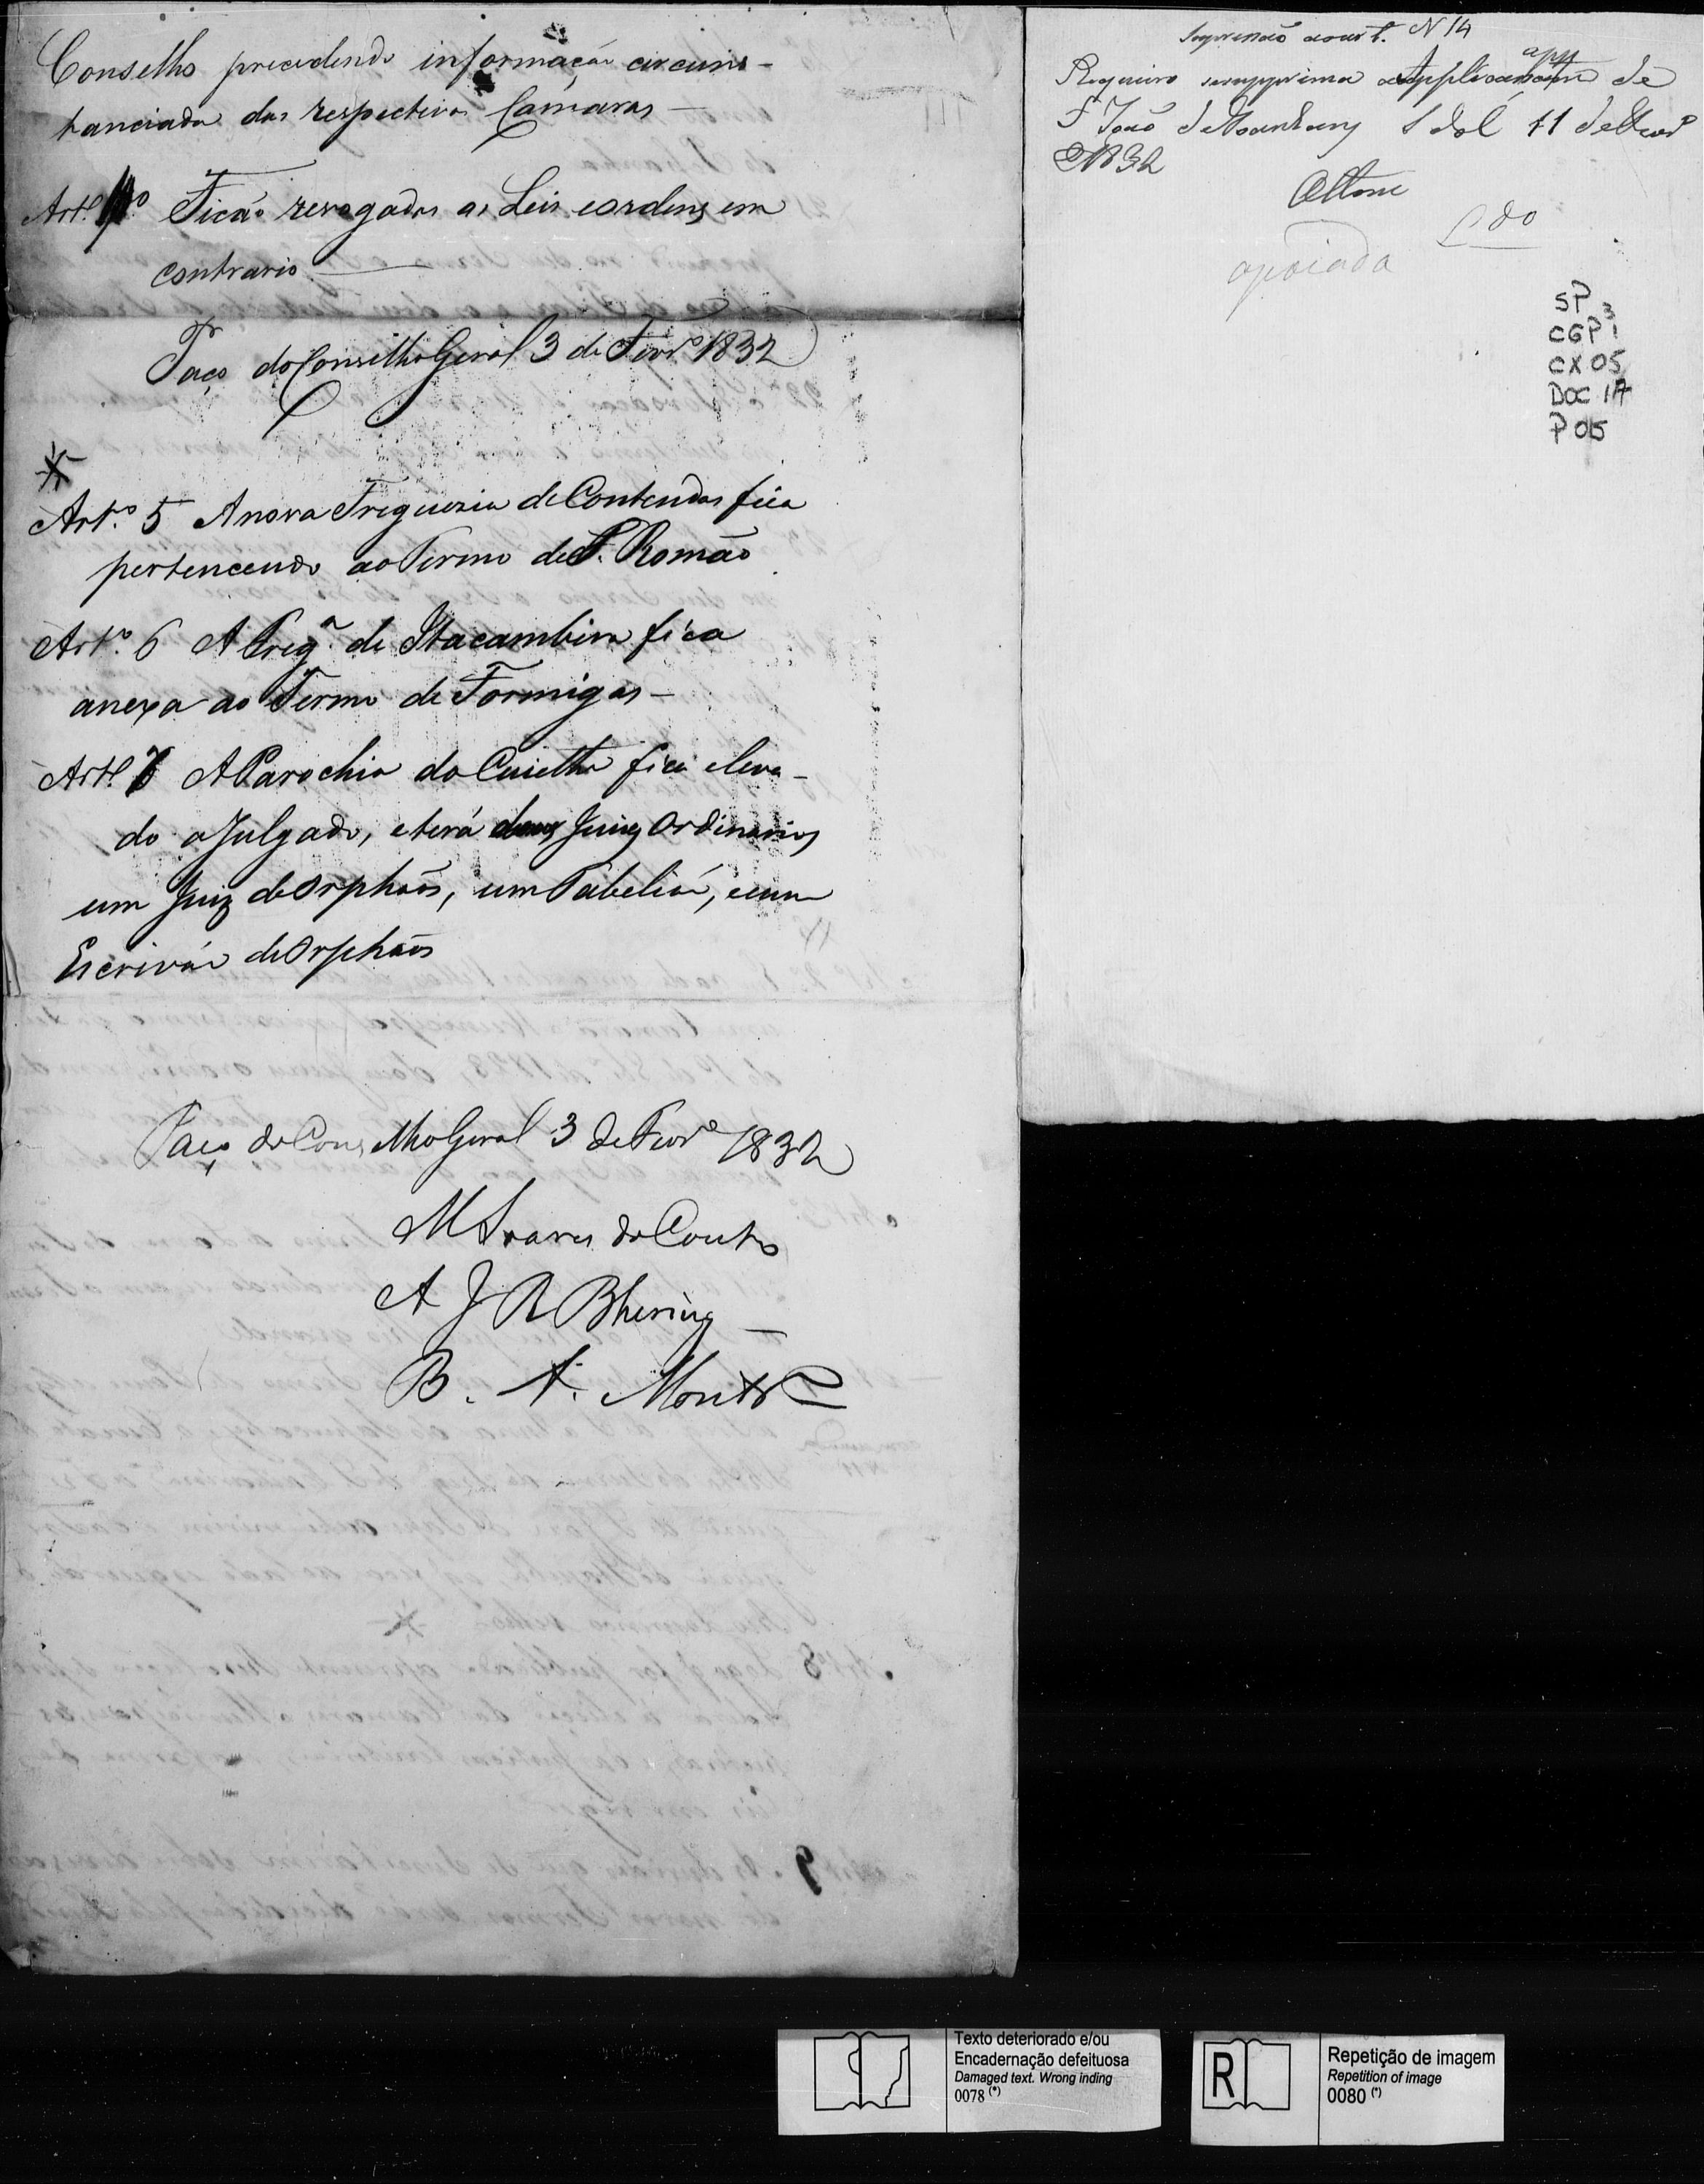 Conselho precedendo informação circuns-
tanciada das respectivas Camaras —
Art.º Ficão revogadas as Leis e ordens em
contrario
Paço do Conselho Geral 3 de Fevrº 1832
Artº. 5 A nova Freguezia de Contendas fica
pertencendo ao Termo de S. Romão
Artº. 6 A Fregª. de Itacambira fica
anexa ao Termo de Formigas —
Artº. 7 A Parochia do Cuiethe fica eleva-
da a Julgado, e terá dous Juizes Ordinarios
um Juiz de Orphãos, um Tabelião, e um
Escrivão de Orphãos
Paço do Conselho Geral 3 de Fevrº 1832
M Soares do Couto
A J R Bhering —
B. A. Montrº
Supressão ao art. N 14
Requeiro se supprima a de
S João 11 de Fevrº
1832
Ottoni
apoiada
SP
CGP 1
3
CX 05
DOC 17
P 05
Texto deteriorado e/ou
Encadernação defeituosa
Damaged text. Wrong inding
0078 (*)
R
Repetição de imagem
Repetition of image
0080 (*)